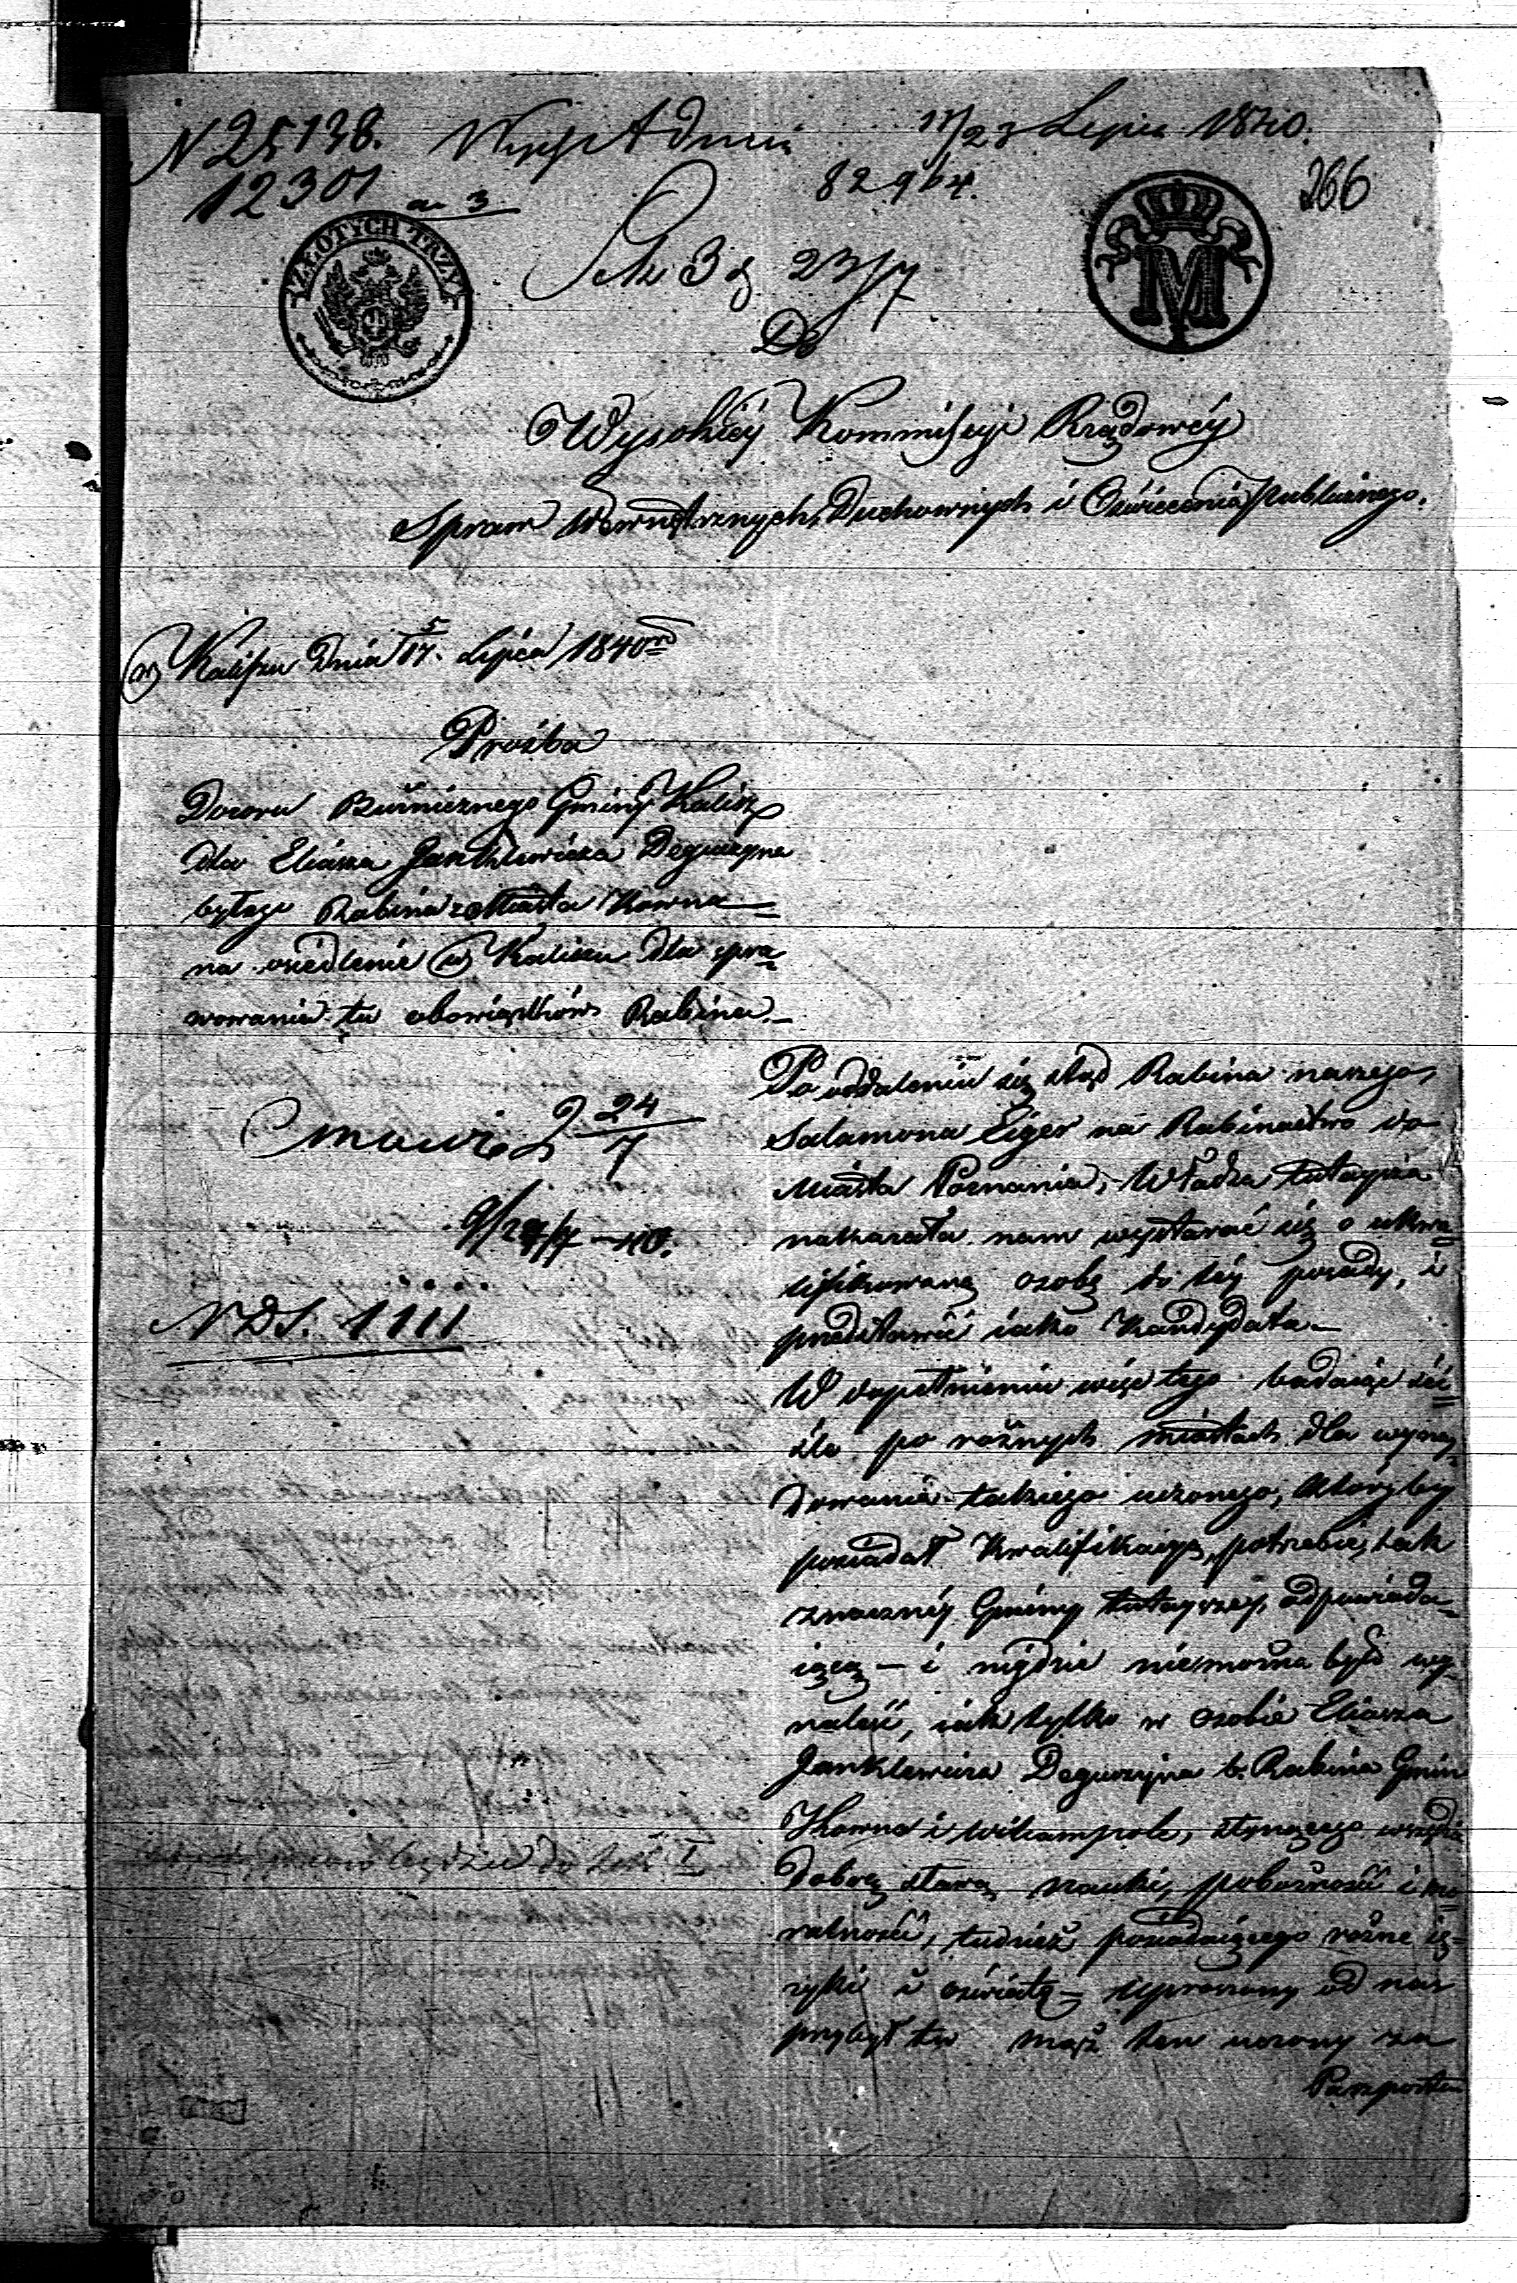 N 25138. Wpł d dnia 11/23 Lipca 1840.
12301 a. 3
82964.
266
ZŁOTYCH TRZY
M
Sek 3 23/7
Do
Wysokiéy Kommissyi Rządowéy
Spraw Wewnętrznych, Duchownych i Oświecenia Publicznego.
w Kaliszu Dnia 5/17. Lipca 1840
Prośba
Dozoru Bużniczego Gminy Kalisz
dla Eliasza Janklewicza Deguczyna
byłego Rabina z Miasta Kowna
na osiedlenie w Kaliszu dla spra=
wowania tu obowiązków Rabina.–
24/7
N DS. 1111
Po oddaleniu się ztąd Rabina naszego
Salamona Eiger na Rabinastwo do
Miasta Poznania, Władza tutaysza
nakazała nam wystarać się o ukwa=
lifikowaną osobę do téy posady, i
przedstawić iako Kandydata–
W dopełnieniu więc tego badaiąc ści=
śle po rożnych miastach dla wynay=
dowania takiego uczonego, któryby
posiadał Kwalifikaiye, potrzebie, tak
znacznéy Gminy tutayszey odpowiada=
iącą – i nigdzie niemożna było wy=
naleść, iak tylko w osobie Eliasza
Janklewicza Deguczyna b. Rabina Gmin
Kowna i Wiliampole, słynącego wszędzie
Dobrą sławą nauki, pobożności i mo=
ralności, tudzież posiadaiącego rożne ię=
zyki i oświatę – uproszony od nas
przybył tu mąż ten uczony za
Paszportem